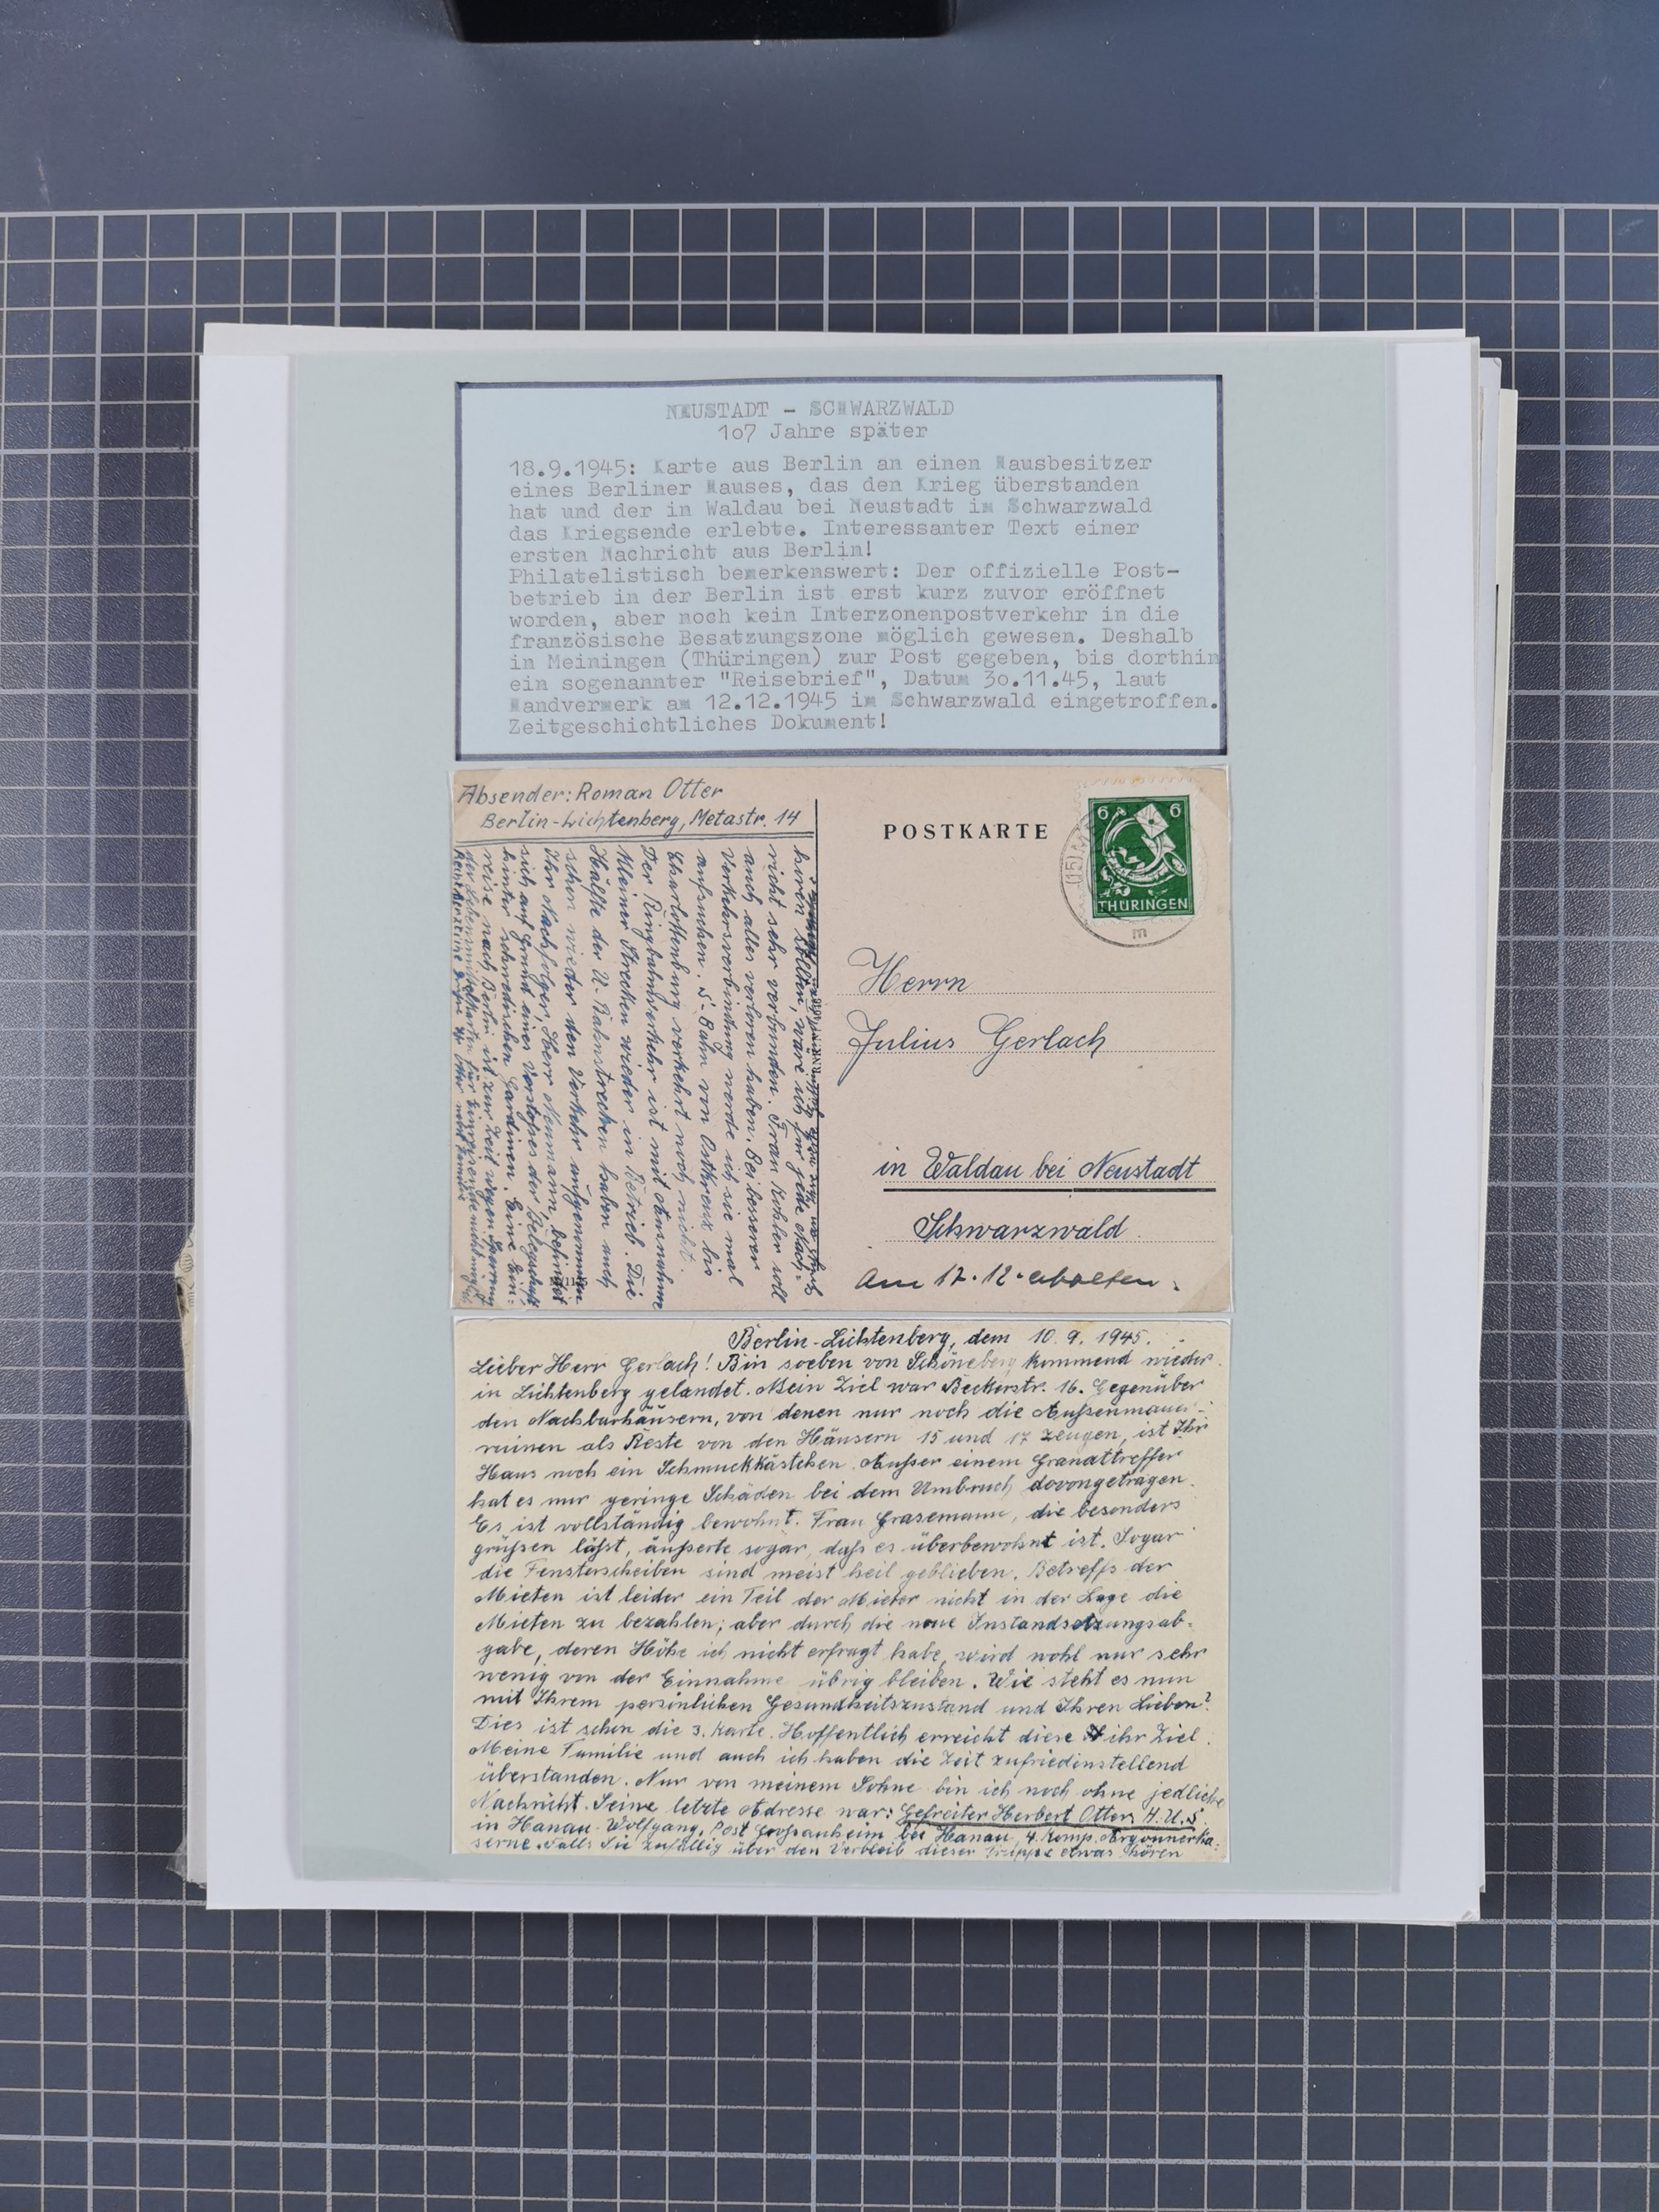 NEUSTADT - SCHWARZWALD
1o7 Jahre später
18.9.1945: Karte aus Berlin an einen Hausbesitzer
eines Berliner Hauses, das den Krieg überstanden
hat und der in Waldau bei Neustadt im Schwarzwald
das Kriegsende erlebte. Interessanter Text einer
ersten Nachricht aus Berlin!
Philatelistisch bemerkenswert: Der offizielle Post-
betrieb in der Berlin ist erst kurz zuvor eröffnet
worden, aber noch kein Interzonenpostverkehr in die
französische Besatzungszone möglich gewesen. Deshalb
in Meiningen (Thüringen) zur Post gegeben, bis dorthin
ein sogenannter "Reisebrief", Datum 3o.11.45, laut
Handvermerk am 12.12.1945 im Schwarzwald eingetroffen.
Zeitgeschichtliches Dokument!
Absender: Roman Otter
Berlin-Lichtenberg, Metastr. 14
POSTKARTE
6 6
THÜRINGEN
(15) M
m
Herrn
Julius Gerlach
in Waldau bei Neustadt
Schwarzwald
Am 12.12. erhalten.
hören sollten, wäre ich für jede Nach-
richt sehr verbunden. Frau Kohler soll
auch alles verloren haben. Bei besserer
Verkehrsverbindung werde ich sie mal
aufsuchen. S-Bahn von Ostkreuz bis
Charlottenburg verkehrt noch nicht.
Der Ringbahnverkehr ist mit Ausnahme
kleiner Strecken wieder in Betrieb. Die
Hälfte der U-Bahnstrecken haben auch
schon wieder den Verkehr aufgenommen
Ihr Nachfolger, Herr Neumann, befindet
sich auf Grund eines Vorstosses der Belegschaft
hinter schwedischen Gardinen. Eine Ein-
reise nach Berlin ist zur Zeit wegen Sperrung
der Lebensmittelkarten für Einreisende nicht möglich
Recht herzliche Grüße Ihr Otter und Familie
Berlin-Lichtenberg, dem 10.9.1945.
Lieber Herr Gerlach! Bin soeben von Schöneberg kommend wieder
in Lichtenberg gelandet. Mein Ziel war Beckerstr. 16. Gegenüber
den Nachbarhäusern, von denen nur noch die Außenmauer-
ruinen als Reste von den Häusern 15 und 17 zeugen, ist Ihr
Haus noch ein Schmuckkästchen. Außer einem Granattreffer
hat es nur geringe Schäden bei dem Umbruch davongetragen.
Es ist vollständig bewohnt. Frau Grasemann, die besonders
grüßen läßt, äußerte sogar, daß es überbewohnt ist. Sogar
die Fensterscheiben sind meist heil geblieben. Betreffs der
Mieten ist leider ein Teil der Mieter nicht in der Lage die
Mieten zu bezahlen; aber durch die neue Instandsetzungsab-
gabe, deren Höhe ich nicht erfragt habe, wird wohl nur sehr
wenig von der Einnahme übrig bleiben. Wie steht es nun
mit Ihrem persönlichen Gesundheitszustand und Ihren Lieben?
Dies ist schon die 3. Karte. Hoffentlich erreicht diese ihr Ziel.
Meine Familie und auch ich haben die Zeit zufriedenstellend
überstanden. Nur von meinem Sohne bin ich noch ohne jedliche
Nachricht. Seine letzte Adresse war: Gefreiter Herbert Otter, H.U.S.
in Hanau-Wolfgang, Post Großauheim bei Hanau, 4. Komp. Argonnerka-
serne. Falls Sie zufällig über den Verbleib dieser Truppe etwas hören